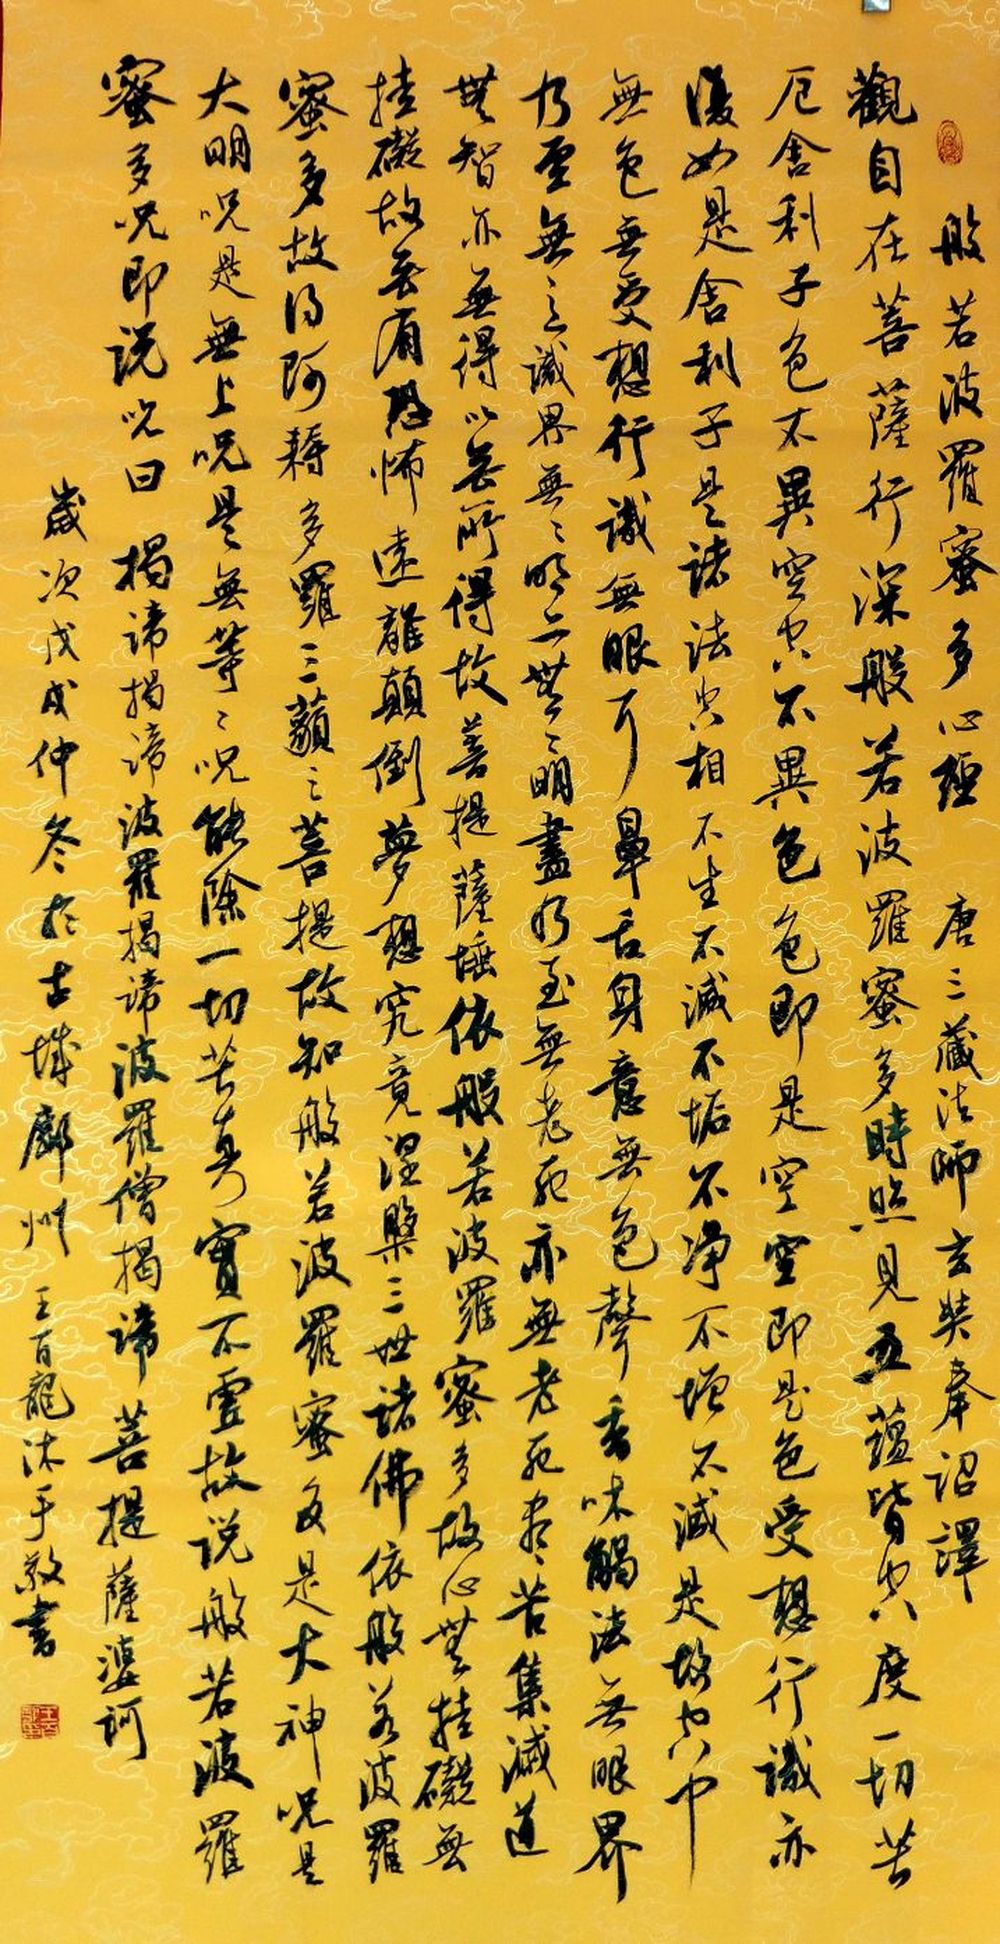 般若波羅蜜多心經 唐三藏法師玄奘奉詔譯
觀自在菩薩行深般若波羅蜜多時照見五蘊皆空度一切苦
厄舍利子色不異空空不異色色即是空空即是色受想行識亦
復如是舍利子是諸法空相不生不滅不垢不净不增不減是故空中
無色無受想行識無眼耳鼻舌身意無色聲香味觸法無眼界
乃至無意識界無〻明亦無〻明盡乃至無老死亦無老死尽苦集滅道
無智亦無得以無所得故菩提薩埵依般若波羅蜜多故心無挂礙無
挂礙故無有恐怖遠離顛倒夢想究竟涅槃三世諸佛依般若波羅
蜜多故得阿耨多羅三藐三菩提故知般若波羅蜜多是大神呪是
大明呪是無上呪是無等〻呪能除一切苦真實不虛故説般若波羅
蜜多呪即説呪曰 揭諦揭諦波羅揭諦波羅僧揭諦菩提薩婆訶
歲次戊戌仲冬於古城鄜州 王百龍沐手敬書